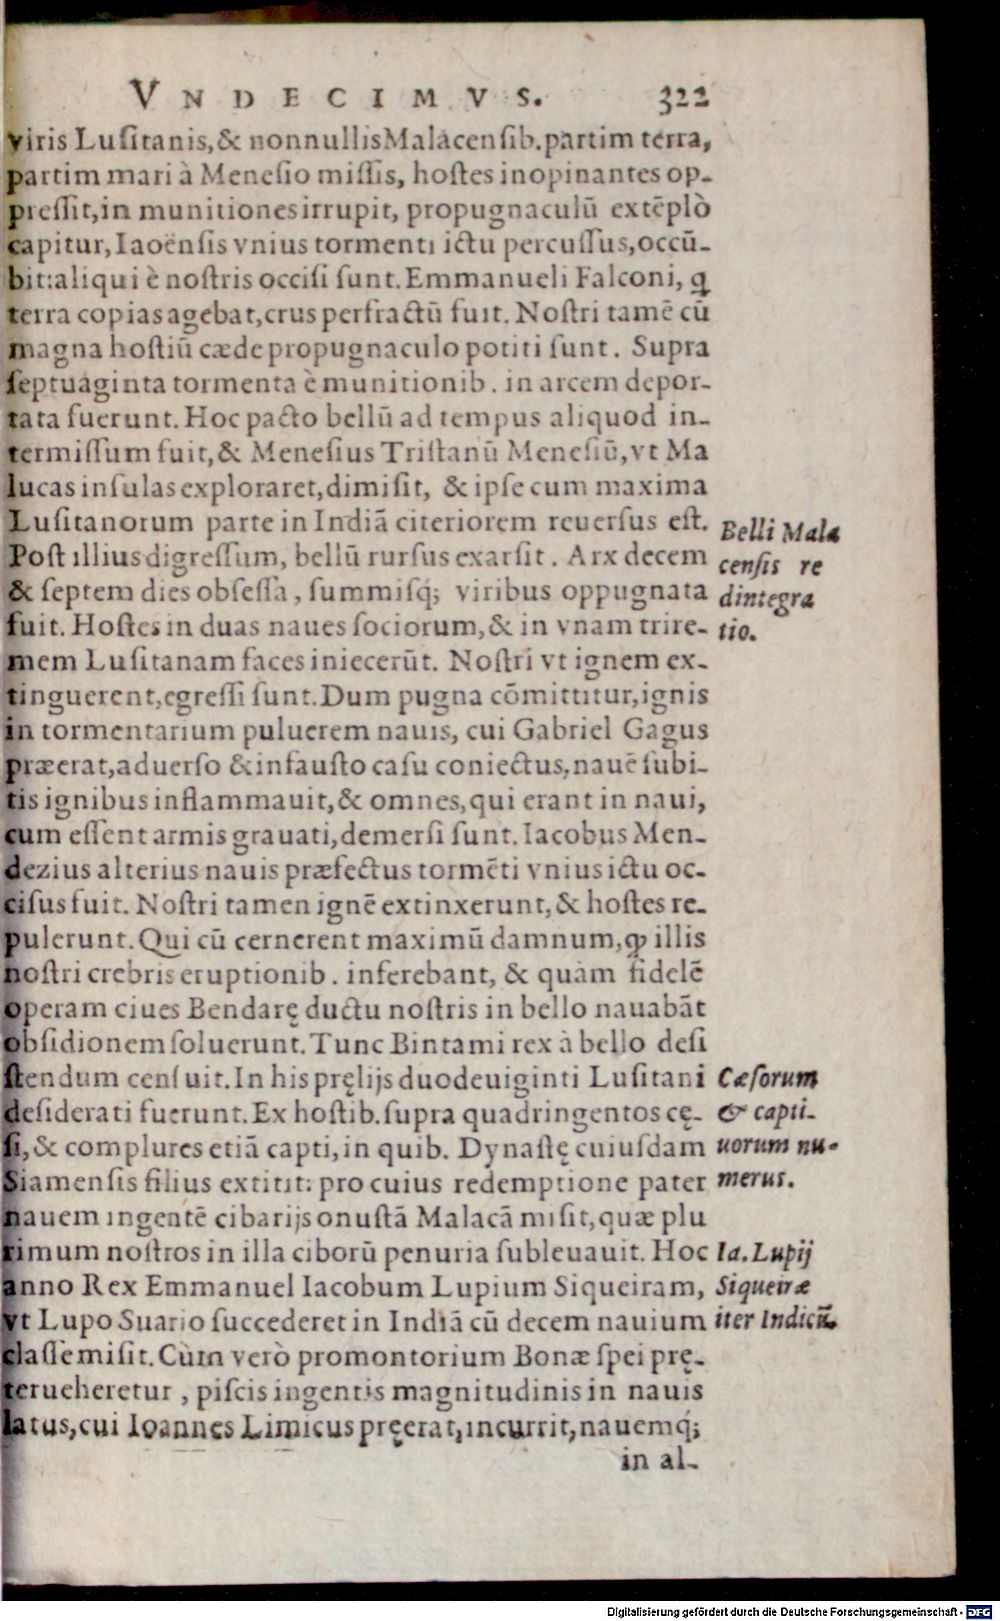 VNDECIMVS. 322
viris Lusitanis,& nonnullis Malacensib.partim terra,
partim mari à Menesio missis, hostes inopinantes op-
pressit,in munitiones irrupit, propugnaculū extēplò
capitur,Iaoënsis vnius tormenti ictu percussus,occū-
bit:aliqui è nostris occisi sunt.Emmanueli Falconi, ꝗ
terra copias agebat,crus perfractū fuit. Nostri tamē cū
magna hostiū cæde propugnaculo potiti sunt. Supra
septuaginta tormenta è munitionib. in arcem depor-
tata fuerunt. Hoc pacto bellū ad tempus aliquod in-
termissum fuit,& Menesius Tristanū Menesiū,vt Ma
lucas insulas exploraret,dimisit, & ipse cum maxima
Lusitanorum parte in Indiā citeriorem reuersus est.
Post illius digressum, bellū rursus exarsit. Arx decem
& septem dies obsessa, summisq́; viribus oppugnata
fuit. Hostes in duas naues sociorum,& in vnam trire-
mem Lusitanam faces iniecerūt. Nostri vt ignem ex-
tinguerent,egressi sunt.Dum pugna cōmittitur,ignis
in tormentarium puluerem nauis, cui Gabriel Gagus
præerat,aduerso & infausto casu coniectus,nauē subi-
tis ignibus inflammauit,& omnes,qui erant in naui,
cum essent armis grauati,demersi sunt. Iacobus Men-
dezius alterius nauis præfectus tormēti vnius ictu oc-
cisus fuit. Nostri tamen ignē extinxerunt,& hostes re-
pulerunt.Qui cū cernerent maximū damnum,ꝙ illis
nostri crebris eruptionib. inferebant, & quàm fidelē
operam ciues Bendaræ̨ ductu nostris in bello nauabāt
obsidionem soluerunt. Tunc Bintami rex à bello desi
stendum censuit. In his pręlijs duodeuiginti Lusitani
desiderati fuerunt. Ex hostib.supra quadringentos cę-
si,& complures etiā capti,in quib. Dynastę cuiusdam
Siamensis filius extitit: pro cuius redemptione pater
nauem ingentē cibarijs onustā Malacā misit,quæ plu
rimum nostros in illa ciborū penuria subleuauit. Hoc
anno Rex Emmanuel Iacobum Lupium Siqueiram,
vt Lupo Suario succederet in Indiā cū decem nauium
classe misit. Cùm verò promontorium Bonæ spei prę-
terueheretur, piscis ingentis magnitudinis in nauis
latus,cui Ioannes Limicus pręerat,incurrit,nauemq́;
in al-
Belli Mala
censis re
dintegra
tio.
Cæsorum
& capti-
uorum nu-
merus.
Ia.Lupij
Siqueiræ
iter Indicū.
Digitalisierung gefördert durch die Deutsche Forschungsgemeinschaft - DFG